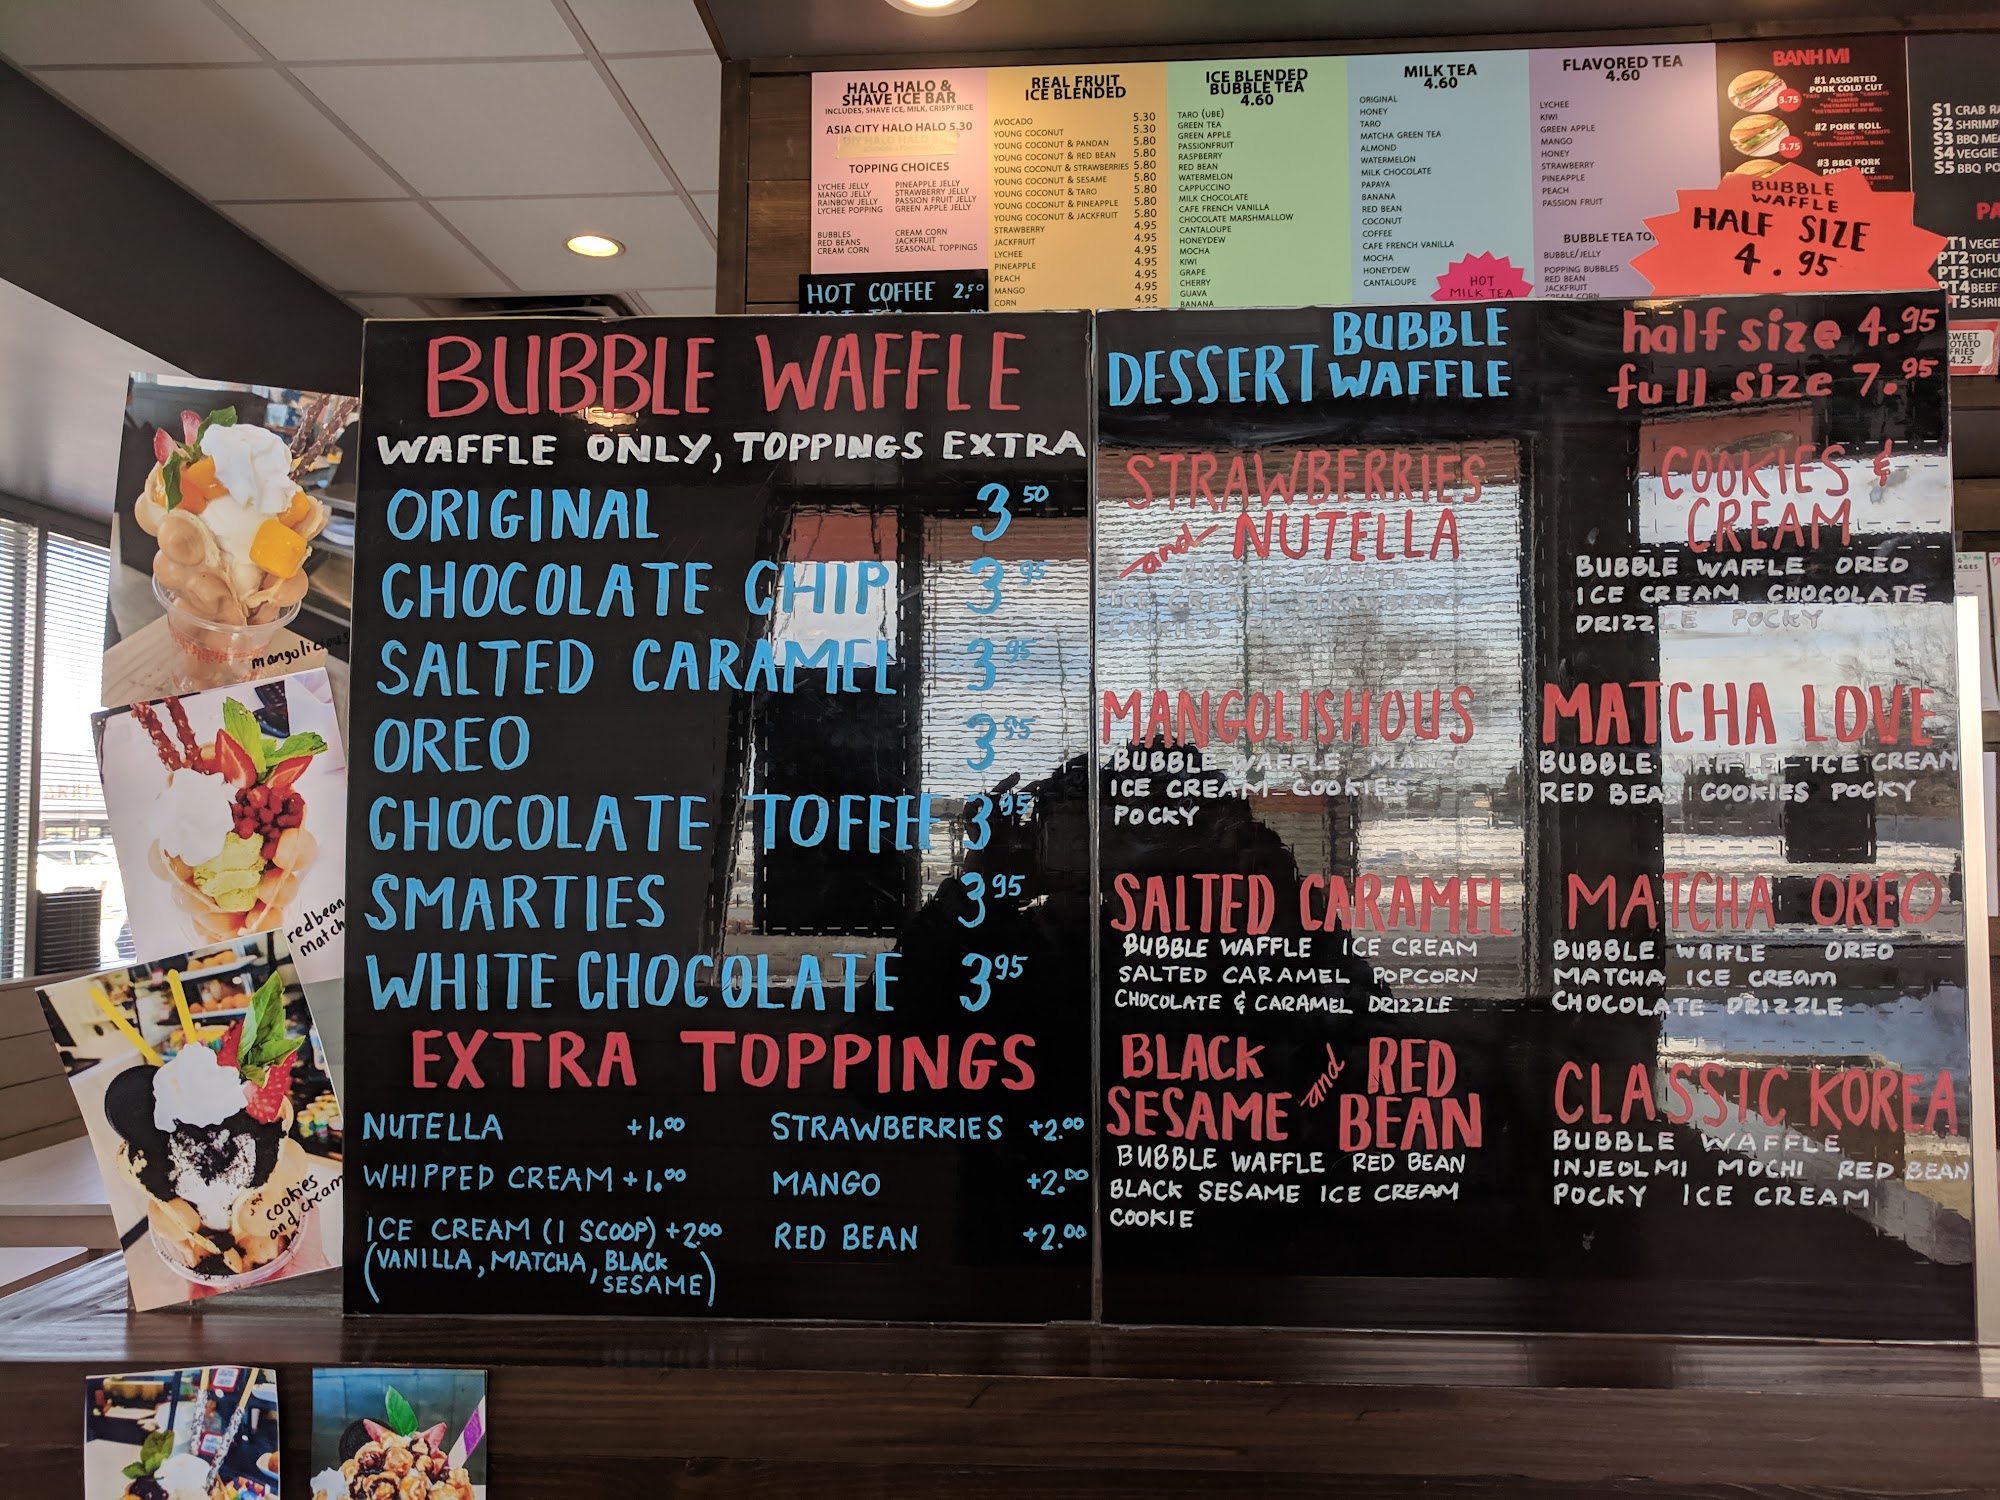 HALO HALO &
SHAVE ICE BAR
INCLUDES, SHAVE ICE, MILK, CRISPY RICE
ASIA CITY HALO HALO 5.30
TOPPING CHOICES
LYCHEE JELLY
MANGO JELLY
RAINBOW JELLY
LYCHEE POPPING
PINEAPPLE JELLY
STRAWBERRY JELLY
PASSION FRUIT JELLY
GREEN APPLE JELLY
BUBBLES
RED BEANS
CREAM CORN
CREAM CORN
JACKFRUIT
SEASONAL TOPPINGS
HOT COFFEE 2.50
REAL FRUIT
ICE BLENDED
AVOCADO 5.30
YOUNG COCONUT 5.30
YOUNG COCONUT & PANDAN 5.80
YOUNG COCONUT & RED BEAN 5.80
YOUNG COCONUT & STRAWBERRIES 5.80
YOUNG COCONUT & SESAME 5.80
YOUNG COCONUT & TARO 5.80
YOUNG COCONUT & PINEAPPLE 5.80
YOUNG COCONUT & JACKFRUIT 5.80
STRAWBERRY 4.95
JACKFRUIT 4.95
LYCHEE 4.95
PINEAPPLE 4.95
PEACH 4.95
MANGO 4.95
CORN 4.95
ICE BLENDED
BUBBLE TEA
4.60
TARO (UBE)
GREEN TEA
GREEN APPLE
PASSIONFRUIT
RASPBERRY
RED BEAN
WATERMELON
CAPPUCCINO
MILK CHOCOLATE
CAFE FRENCH VANILLA
CHOCOLATE MARSHMALLOW
CANTALOUPE
HONEYDEW
MOCHA
KIWI
GRAPE
CHERRY
GUAVA
BANANA
MILK TEA
4.60
ORIGINAL
HONEY
TARO
MATCHA GREEN TEA
ALMOND
WATERMELON
MILK CHOCOLATE
PAPAYA
BANANA
RED BEAN
COCONUT
COFFEE
CAFE FRENCH VANILLA
MOCHA
HONEYDEW
CANTALOUPE
HOT
MILK TEA
FLAVORED TEA
4.60
LYCHEE
KIWI
GREEN APPLE
MANGO
HONEY
STRAWBERRY
PINEAPPLE
PEACH
PASSION FRUIT
BUBBLE TEA TO
BUBBLE/JELLY
POPPING BUBBLES
RED BEAN
JACKFRUIT
CREAM CORN
BANH MI
#1 ASSORTED
PORK COLD CUT
3.75
#2 PORK ROLL
3.75
#3 BBQ PORK
BUBBLE
WAFFLE
HALF SIZE
4.95
S1 CRAB
S2 SHRIMP
S3 BBQ
S4 VEGGIE
S5 BBQ
PT2 TOFU
PT4 BEEF
SWEET
POTATO
FRIES
4.25
BUBBLE WAFFLE
WAFFLE ONLY, TOPPINGS EXTRA
ORIGINAL 3.50
CHOCOLATE CHIP 3.95
SALTED CARAMEL 3.95
OREO 3.95
CHOCOLATE TOFFEE 3.95
SMARTIES 3.95
WHITE CHOCOLATE 3.95
EXTRA TOPPINGS
NUTELLA +1.00
WHIPPED CREAM +1.00
ICE CREAM (1 SCOOP) +2.00
(VANILLA, MATCHA, BLACK
SESAME)
STRAWBERRIES +2.00
MANGO +2.00
RED BEAN +2.00
DESSERT BUBBLE
WAFFLE
half size 4.95
full size 7.95
STRAWBERRIES
and NUTELLA
BUBBLE WAFFLE
MANGOLISHOUS
BUBBLE WAFFLE MANGO
ICE CREAM COOKIES
POCKY
SALTED CARAMEL
BUBBLE WAFFLE ICE CREAM
SALTED CARAMEL POPCORN
CHOCOLATE & CARAMEL DRIZZLE
BLACK
SESAME and RED
BEAN
BUBBLE WAFFLE RED BEAN
BLACK SESAME ICE CREAM
COOKIE
COOKIES &
CREAM
BUBBLE WAFFLE OREO
ICE CREAM CHOCOLATE
DRIZZLE POCKY
MATCHA LOVE
BUBBLE WAFFLE ICE CREAM
RED BEAN COOKIES POCKY
MATCHA OREO
BUBBLE WAFFLE OREO
MATCHA ICE CREAM
CHOCOLATE DRIZZLE
CLASSIC KOREA
BUBBLE WAFFLE
INJEOLMI MOCHI RED BEAN
POCKY ICE CREAM
mangolicious
redbean
matcha
cookies
and cream